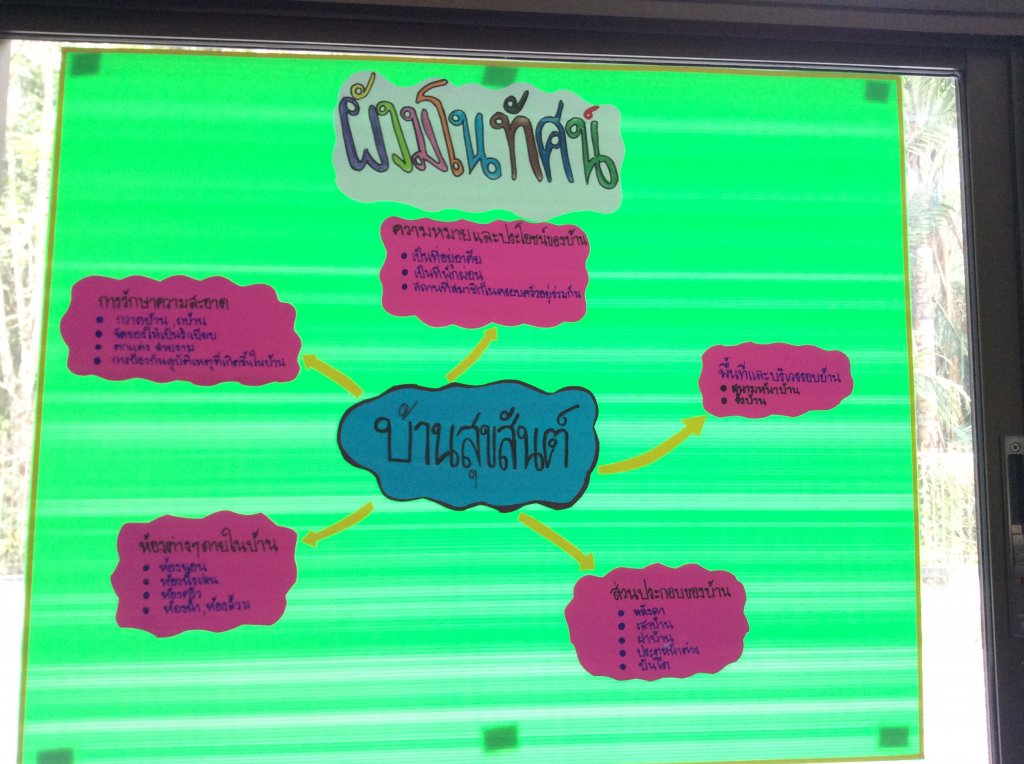 ผังมโนทัศน์
ความหมายและประโยชน์ของบ้าน
เป็นที่อยู่อาศัย
เป็นที่พักผ่อน
สถานที่สมาชิกในครอบครัวอยู่ร่วมกัน
การรักษาความสะอาด
กวาดบ้าน ,ถูบ้าน
จัดของให้เป็นระเบียบ
ตกแต่ง สวยงาม
การป้องกันอุบัติเหตุที่เกิดขึ้นในบ้าน
พื้นที่และบริเวรรอบบ้าน
สนามหน้าบ้าน
รั้วบ้าน
บ้านสุขสันต์
ห้องต่างๆภายในบ้าน
ห้องนอน
ห้องนั่งเล่น
ห้องครัว
ห้องน้ำ ,ห้องส้วม
ส่วนประกอบของบ้าน
หลังคา
เสาบ้าน
ฝาบ้าน
ประตูหน้าต่าง
บันได